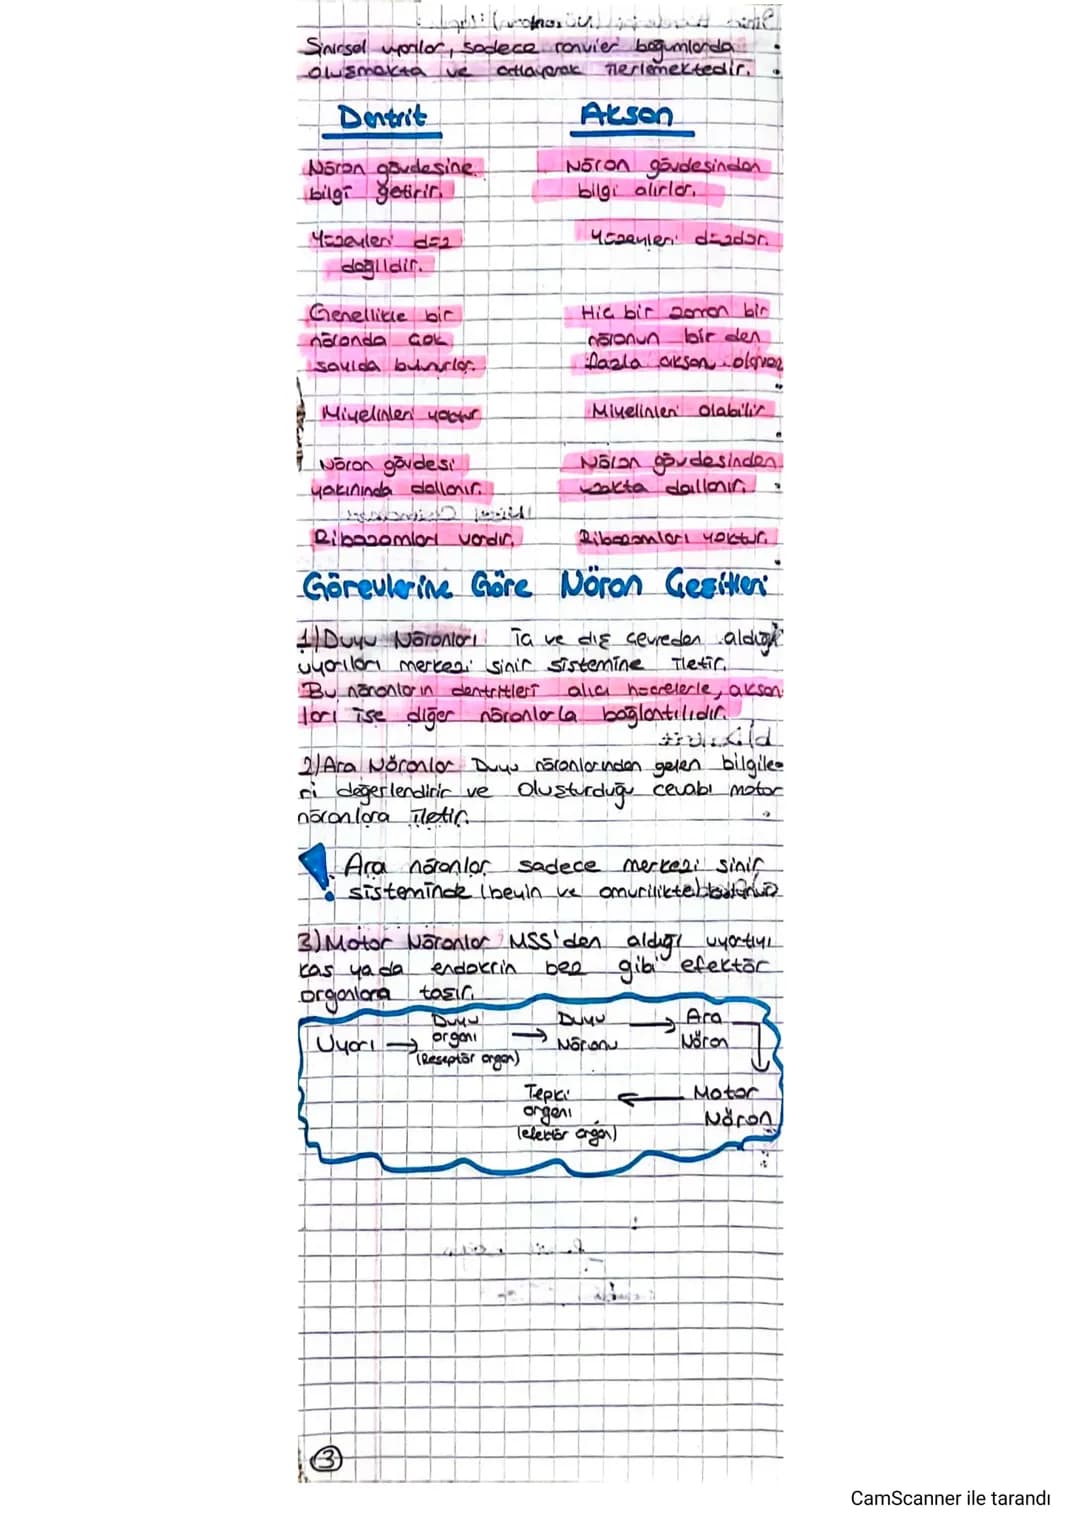 Sinirsel uyarılar, sadece ranvier boğumlarda
oluşmakta ve atlayarak ilerlemektedir.
Dentrit
Akson
Nöron gövdesine
bilgi getirir.
Nöron gövdesinden
bilgi alırlar.
Yüzeyleri düz
değildir.
Yüzeyleri düzdür.
Genellikle bir
nöronda çok
sayıda bulunurlar.
Hiç bir zaman bir
nöronun bir den
fazla aksonu olamaz
Miyelinleri yoktur
Miyelinleri olabilir
Nöron gövdesi
yakınında dallanır.
Nöron gövdesinden
uzakta dallanır.
Ribozomları vardır.
Ribozomları yoktur.
Görevlerine Göre Nöron Çeşitleri
1) Duyu Nöronları İç ve dış çevreden aldığı
uyarıları merkezi sinir sistemine iletir.
Bu nöronların dentritleri alıcı hücrelerle, akson
ları ise diğer nöronlarla bağlantılıdır.
2) Ara Nöronlar Duyu nöronlarından gelen bilgile-
ri değerlendirir ve oluşturduğu cevabı motor
nöronlara iletir.
! Ara nöronlar sadece merkezi sinir
sisteminde (beyin ve omurilikte) bulunur
3) Motor Nöronlar MSS'den aldığı uyartıyı
kas ya da endokrin bez gibi efektör
organlara taşır.
Uyarı → Duyu organı (Reseptör organ) → Duyu Nöronu → Ara Nöron
Tepki organı (efektör organ) ← Motor Nöron
3
CamScanner ile tarandı